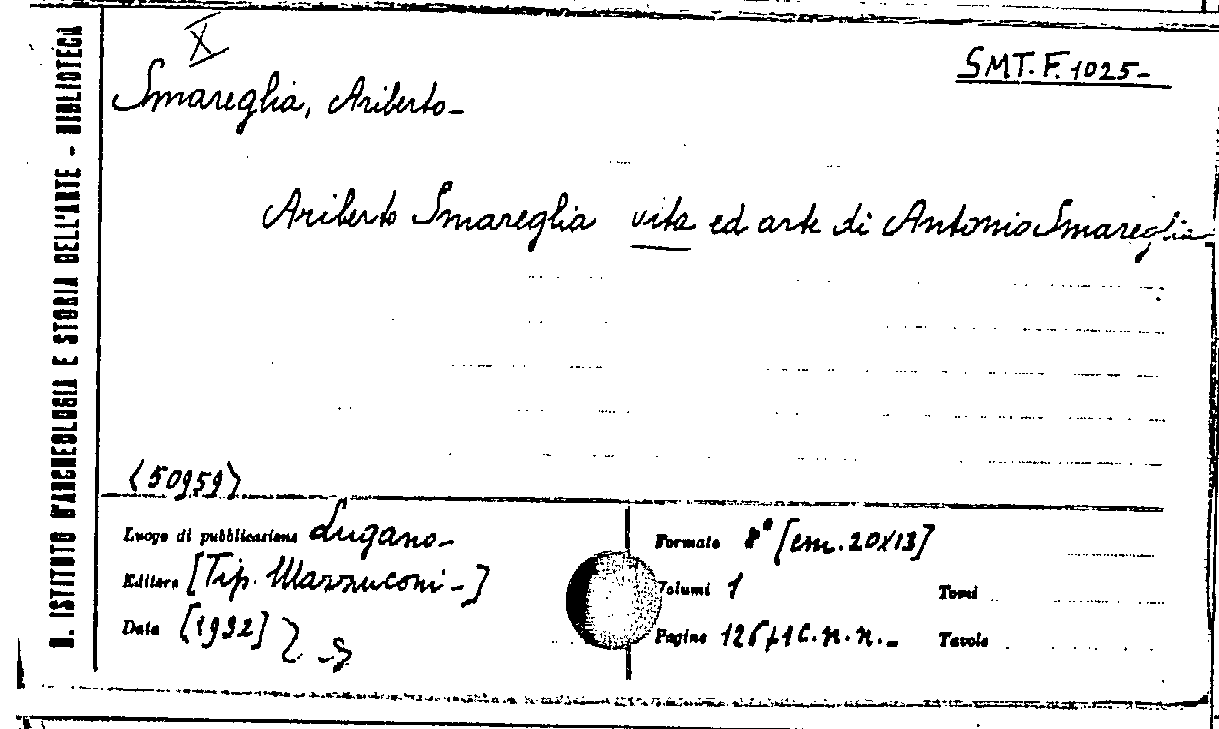 X
SMT. F. 1025-
Smareglia, Ariberto-
Ariberto Smareglia vita ed arte di Antonio Smareglia
<50959>
Luogo di pubblicazione Lugano-
Editore [Tip. Mazzuconi-]
Data [1932]
Formato 8° [cm. 20x13]
Volumi 1
Tomi
Pagine 126+1 c. n. n.-
Tavole
R. ISTITUTO D'ARCHEOLOGIA E STORIA DELL'ARTE - BIBLIOTECA